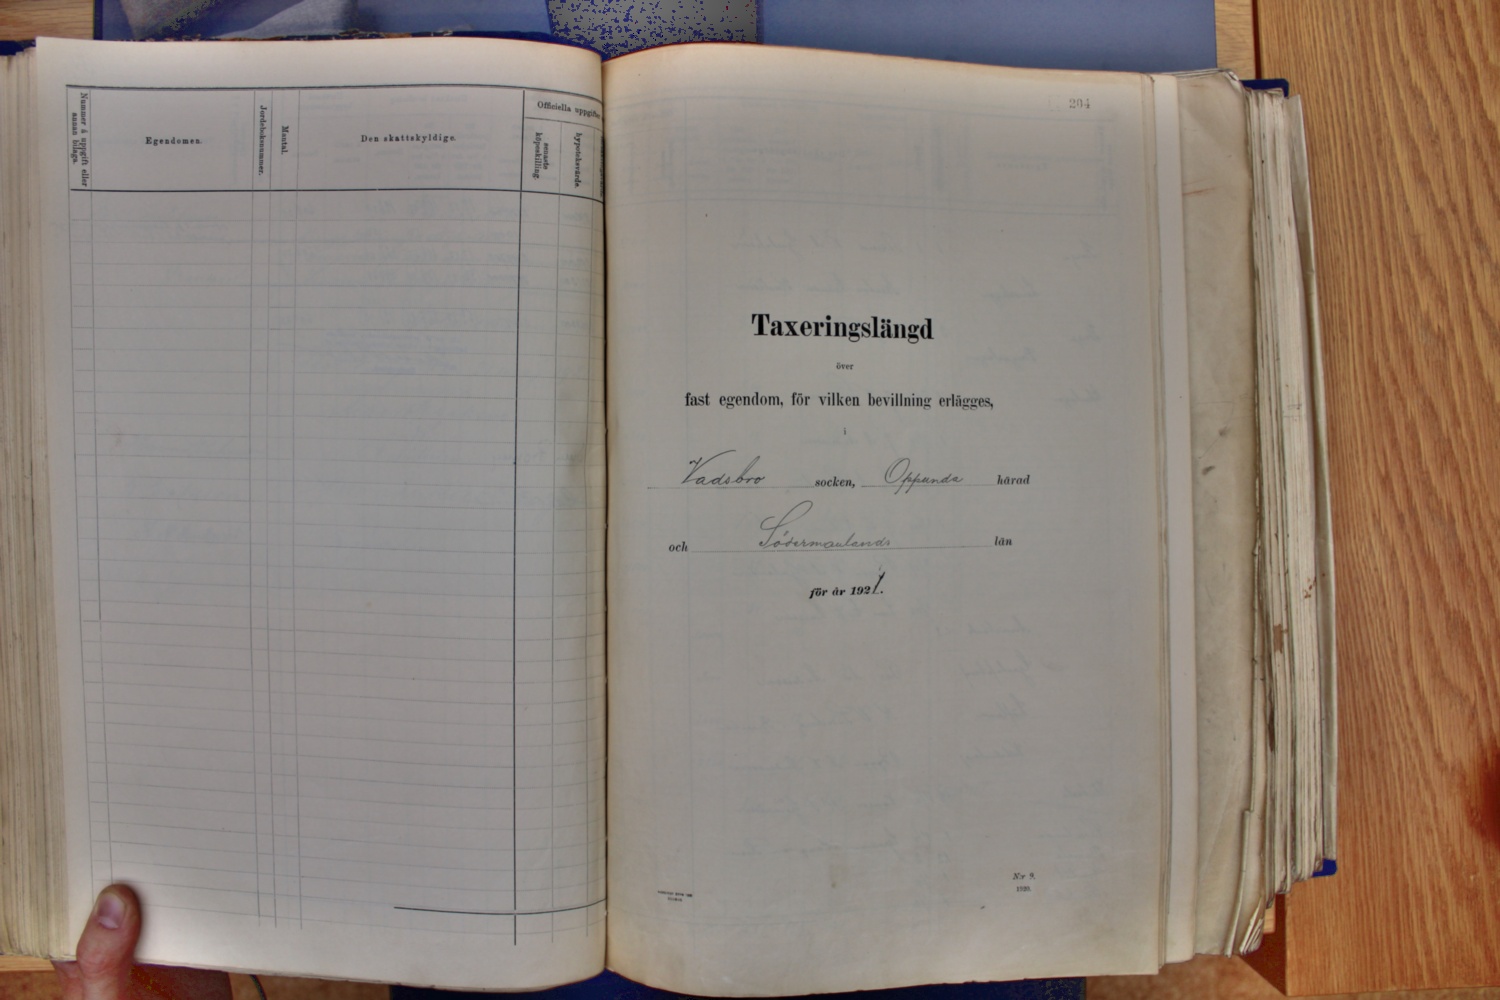 Nummer å uppgift eller
annan bilaga.
Egendomen.
Jordeboksnummer.
Mantal.
Den skattskyldige.
Officiella uppgifter
senaste
köpeskilling.
hypoteksvärde.
204
Taxeringslängd
över
fast egendom, för vilken bevillning erlägges,
i
Vadsbro socken, Oppunda härad
och Södermanlands län
för år 1921.
N:r 9.
1920.